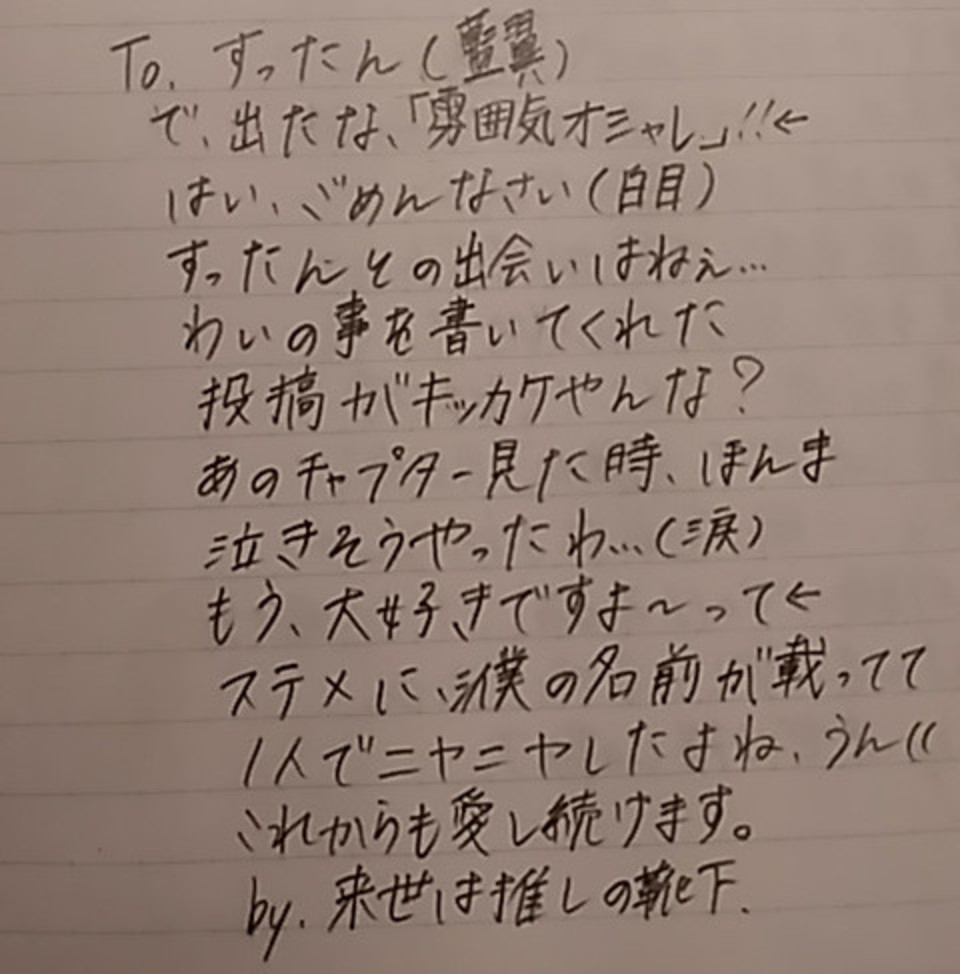 To. すったん(藍翼)
で、出たな、「雰囲気オシャレ」!!←
はい、ごめんなさい(白目)
すったんとの出会いはねぇ…
わいの事を書いてくれた
投稿がキッカケやんな?
あのチャプター見た時、ほんま
泣きそうやったわ…(涙)
もう、大好きですよ〜って←
ステメに、僕の名前が載ってて
1人でニヤニヤしたよね、うん((
これからも愛し続けます。
by. 来世は推しの靴下.